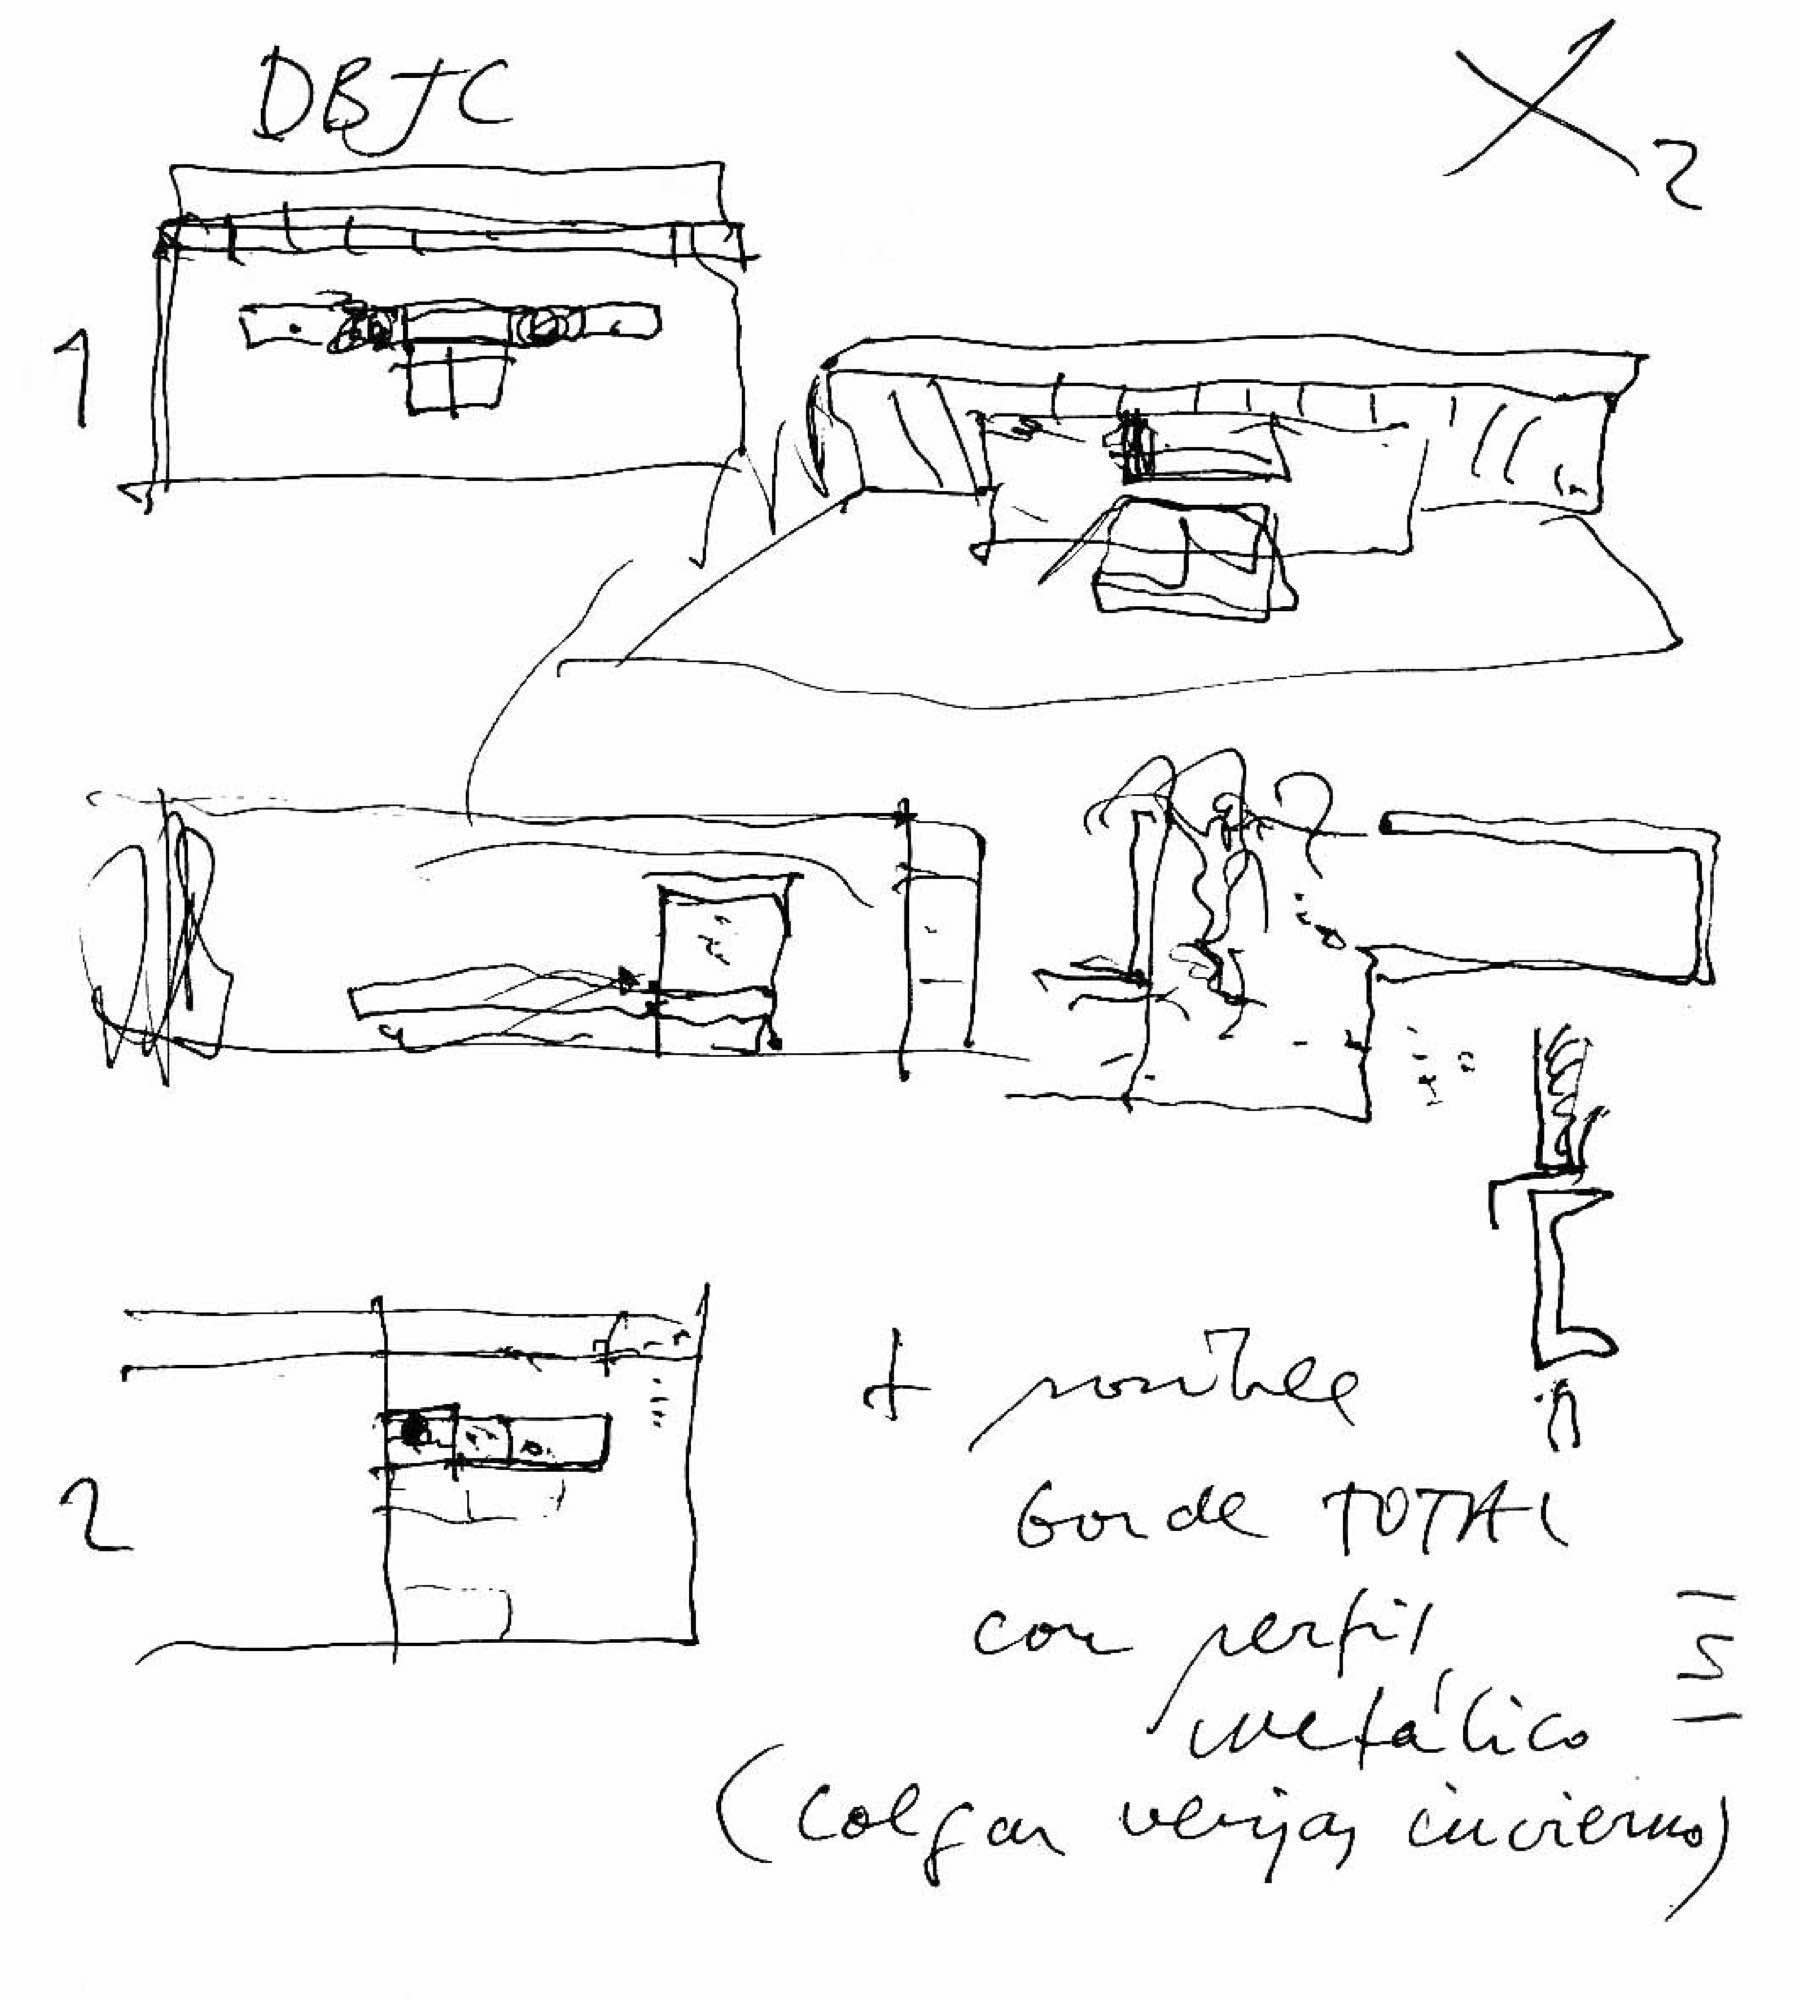 DBJC
X2
1
2
+ posible
borde TOTAL
con perfil
metálico
(colgar verjas invierno)